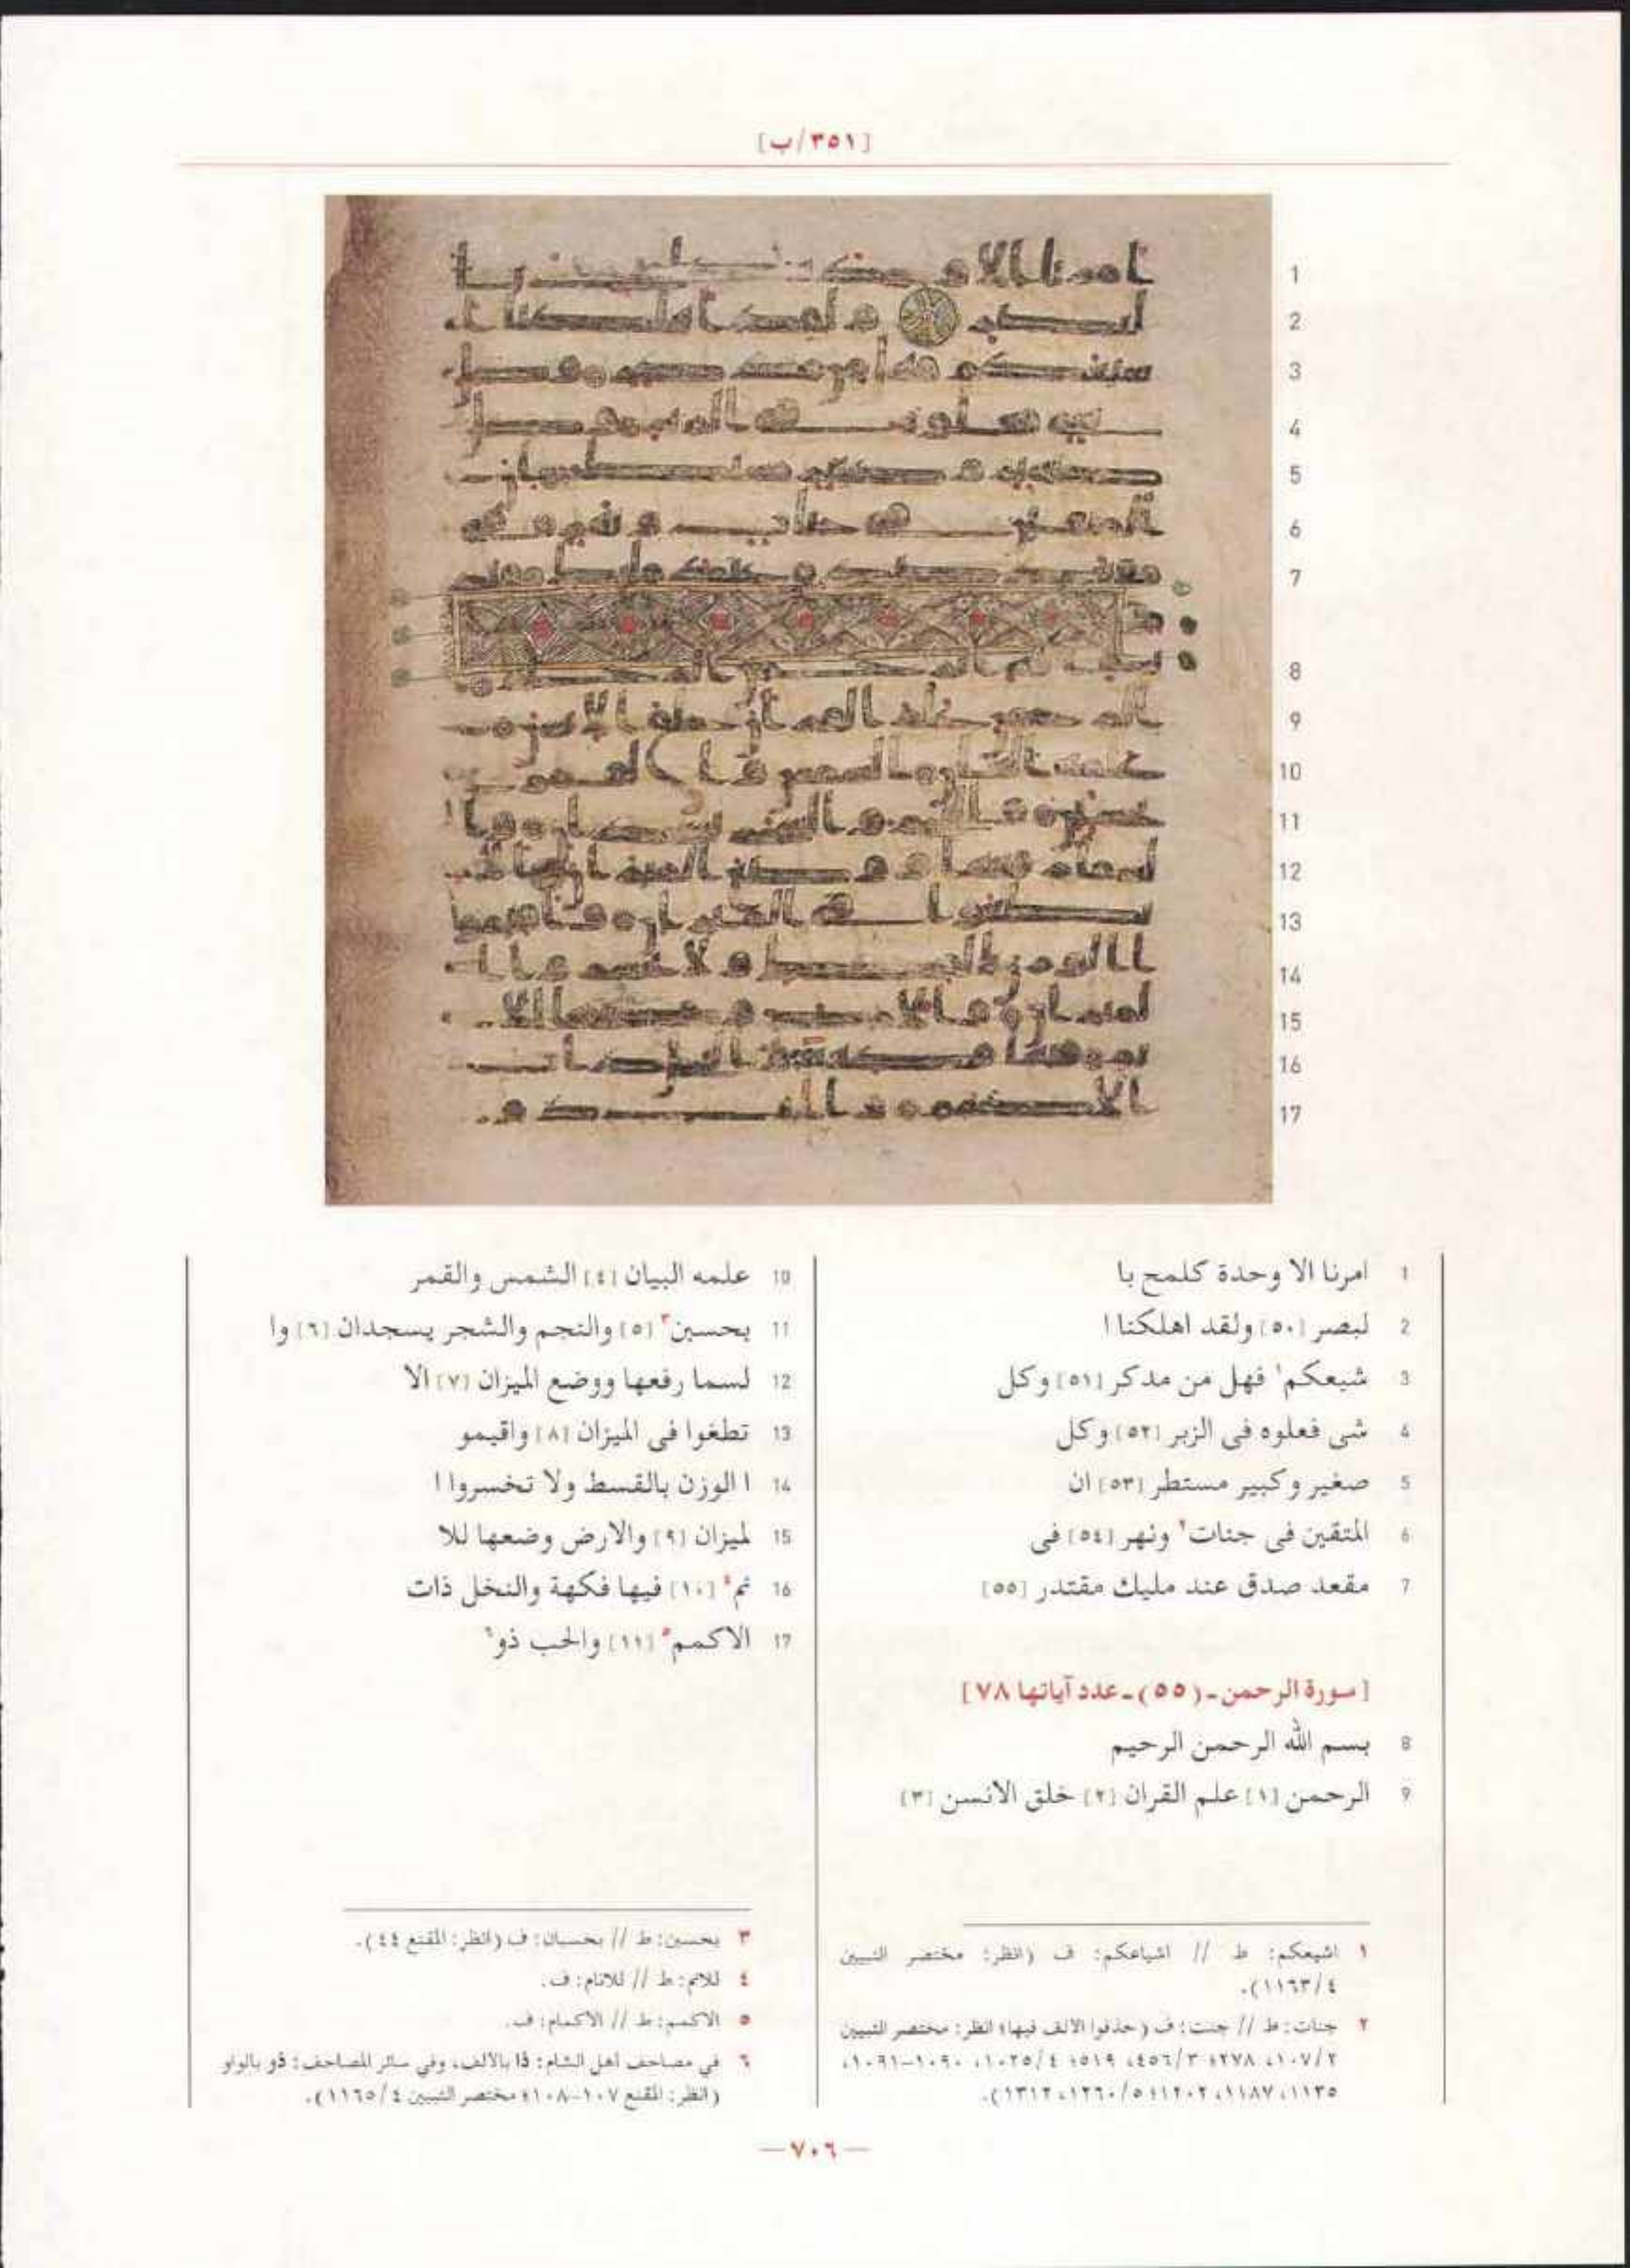 [٣٥١/ب]
1 امرنا الا وحدة كلمح با
2 لبصر [٥٠] ولقد اهلكنا ا
3 شيعكم١ فهل من مدكر [٥١] وكل
4 شى فعلوه فى الزبر [٥٢] وكل
5 صغير وكبير مستطر [٥٣] ان
6 المتقين فى جنات٢ ونهر [٥٤] فى
7 مقعد صدق عند مليك مقتدر [٥٥]
[سورة الرحمن ـ (٥٥) ـ عدد آياتها ٧٨]
8 بسم الله الرحمن الرحيم
9 الرحمن [١] علم القران [٢] خلق الانسن [٣]
10 علمه البيان [٤] الشمس والقمر
11 بحسبن٣ [٥] والنجم والشجر يسجدان [٦] وا
12 لسما رفعها ووضع الميزان [٧] الا
13 تطغوا فى الميزان [٨] واقيمو
14 ا الوزن بالقسط ولا تخسروا ا
15 لميزان [٩] والارض وضعها للا
16 نم٤ [١٠] فيها فكهة والنخل ذات
17 الاكمم٥ [١١] والحب ذو٦
١ اشيعكم: ط // اشياعكم: ف (انظر: مختصر التبيين
٤/١١٦٣).
٢ جنات: ط // جنت: ف (حذفوا الالف فيها؛ انظر: مختصر التبيين
٢/١٠٧، ٢٧٨؛ ٣/٤٥٦، ٥١٩؛ ٤/١٠٢٥، ١٠٩٠-١٠٩١،
١١٣٥، ١١٨٧، ١٢٠٢؛ ٥/١٢٦٠، ١٣١٢).
٣ بحسبن: ط // بحسبان: ف (انظر: المقنع ٤٤).
٤ للانم: ط // للانام: ف.
٥ الاكمم: ط // الاكمام: ف.
٦ في مصاحف أهل الشام: ذا بالألف، وفي سائر المصاحف: ذو بالواو
(انظر: المقنع ١٠٧-١٠٨؛ مختصر التبيين ٤/١١٦٥).
— ٧٠٦ —